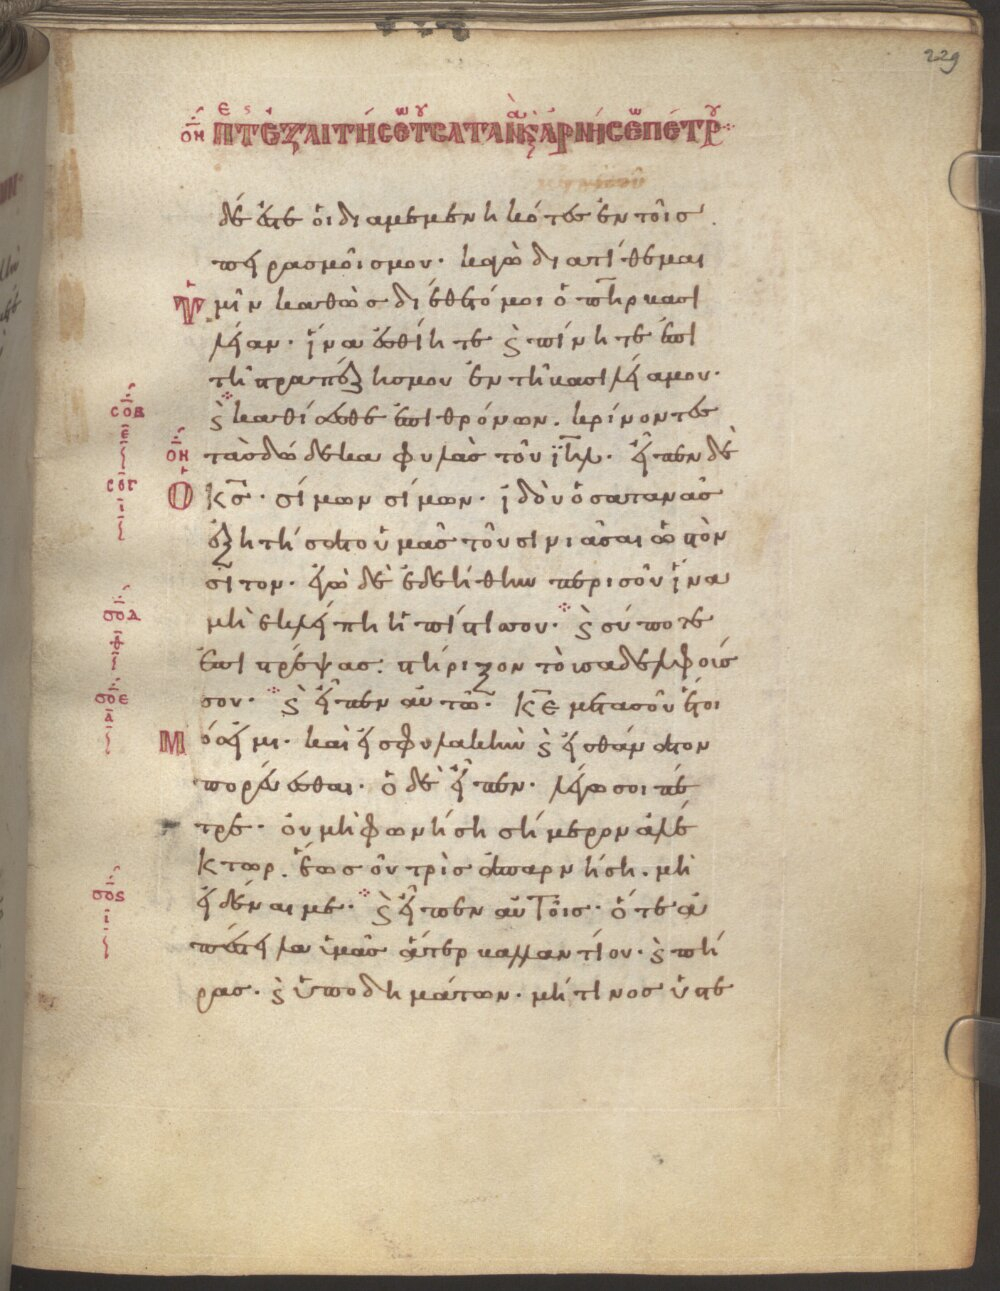 229
οη περὶ τ ἐξαιτήσεως τ σατανᾶ ϗ ἀρνήσεως πέτρου
δέ ἐστε οἱ διαμεμενηκότες ἐν τοῖς
πειρασμοῖς μου· κἀγὼ διατίθεμαι
ὑμῖν καθὼς διέθετό μοι ὁ πηρ βασι
λείαν· ἵνα ἐσθίητε ϗ πίνητε ἐπὶ
τῇ τραπέζῃς μου ἐν τῇ βασιλείᾳ μου·
σοβ ε
ϗ καθίσεσθε ἐπὶ θρόνων. κρίνοντες
οη
τὰς δώδεκα φυλὰς τοῦ ιηλ· εἶπεν δὲ
σογ ι
ὁ κς· σίμων σίμων· ἰδοὺ ὁ σατανᾶς
ἐξητήσατο ὑμᾶς τοῦ σινιᾶσαι ὡς τὸν
σῖτον· ἐγὼ δὲ ἐδεήθην περὶ σοῦ ἵνα
σοδ θ
μὴ ἐκλείπῃ ἡ πίστις σου· ϗ σύ ποτε
ἐπιστρέψας· στήριξον τοὺς ἀδελφούς
σοε α
σου· ϗ εἶπεν αὐτῶ· κε μετὰ σοῦ ἕτοι
μός εἰμι· καὶ εἰς φυλακὴν ϗ εἰς θάνατον
πορεύεσθαι· ὁ δὲ εἶπεν· λέγω σοι πέ
τρε· οὐ μὴ φωνήσῃ σήμερον ἀλέ
κτωρ. ἕως οὗ τρὶς ἀπαρνήσῃ. μὴ
σος ι
εἰδέναι με· ϗ εἶπεν αὐτοῖς· ὅτε ἀ
πέστειλα ὑμᾶς ἄτερ βαλλαντίου· ϗ πή
ρας· ϗ ὑποδημάτων· μή τινος ὑστε